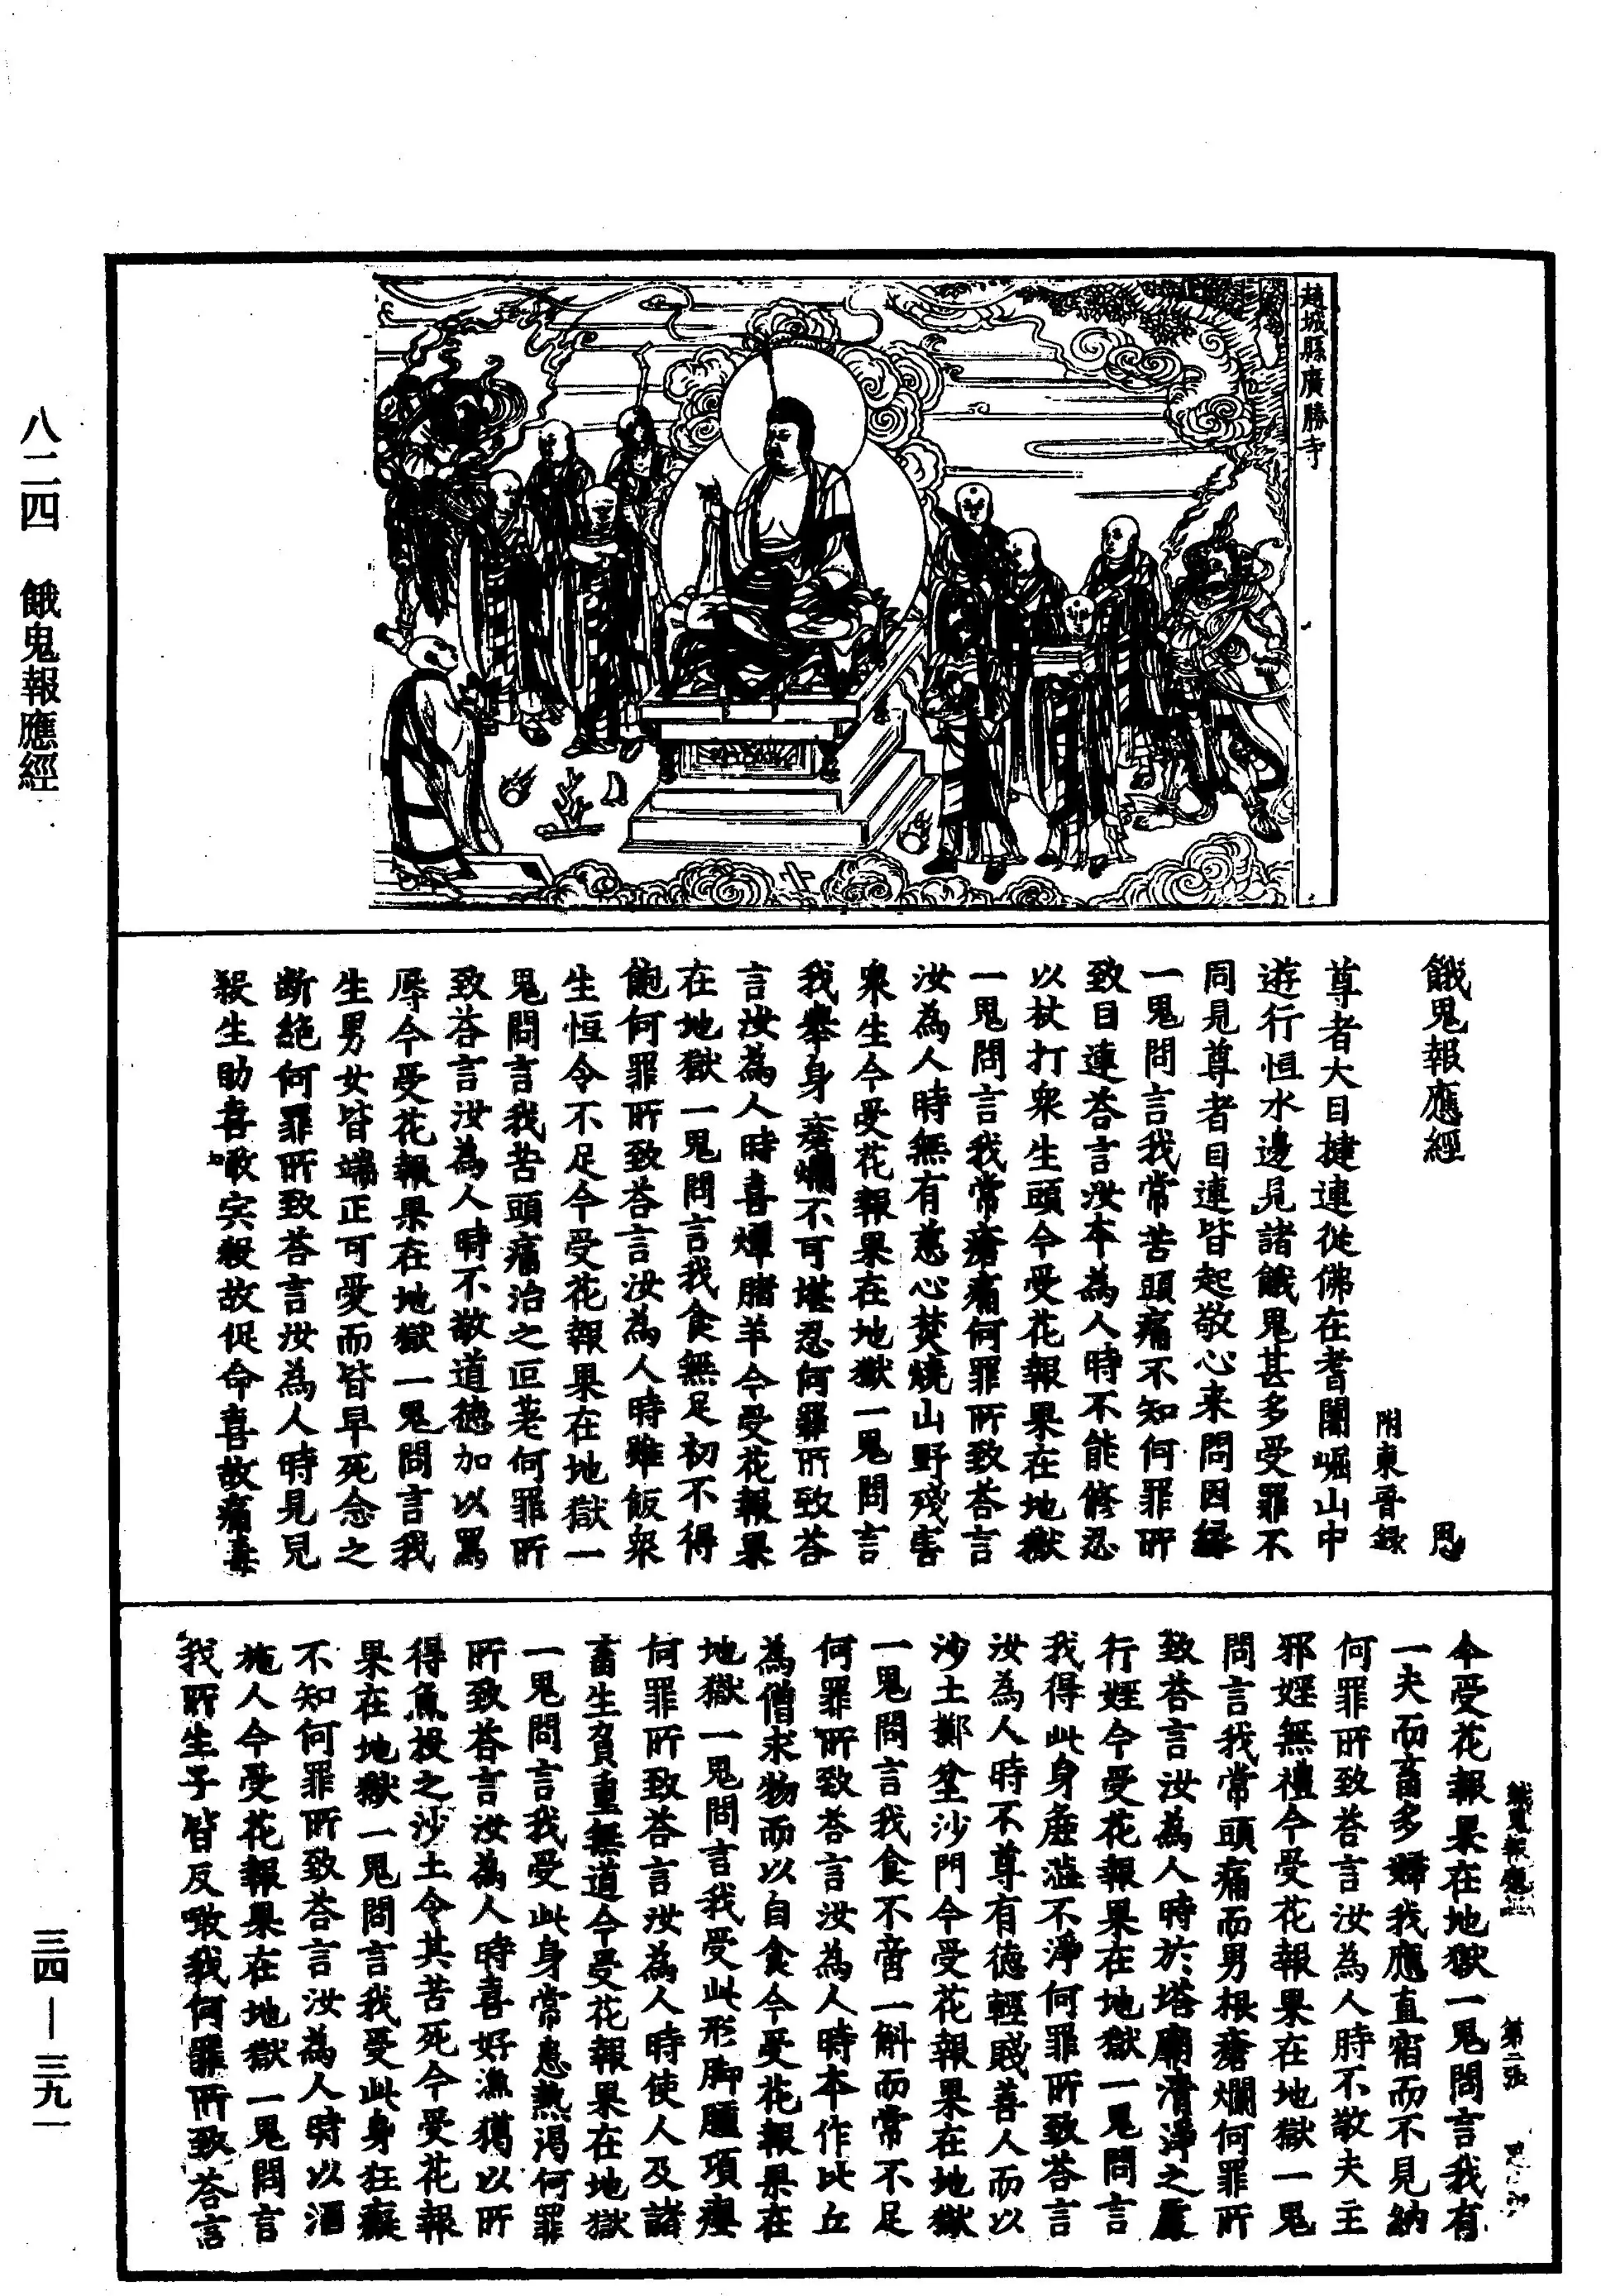 趙城縣廣勝寺
餓鬼報應經 恩
附東晉録
尊者大目揵連從佛在耆闍崛山中
遊行恒水邊見諸餓鬼甚多受罪不
同見尊者目連皆起敬心来問因緣
一鬼問言我常苦頭痛不知何罪所
致目連荅言汝本為人時不能修忍
以杖打衆生頭今受花報果在地獄
一鬼問言我常瘡痛何罪所致荅言
汝為人時無有慈心焚燒山野殘害
衆生今受花報果在地獄一鬼問言
我舉身瘡爛不可堪忍何罪所致荅
言汝為人時喜燖腤羊今受花報果
在地獄一鬼問言我食無足初不得
飽何罪所致荅言汝為人時雖飯衆
生恒令不足今受花報果在地獄一
鬼問言我苦頭痛治之叵差何罪所
致荅言汝為人時不敬道德加以罵
辱今受花報果在地獄一鬼問言我
生男女皆端正可愛而皆早死念之
断絶何罪所致荅言汝為人時見兒
殺生助喜噉宍殺故促命喜故痛毒
餓鬼報應經 第二張
今受花報果在地獄一鬼問言我有
一夫而畜多婦我應直宿而不見納
何罪所致荅言汝為人時不敬夫主
邪婬無禮今受花報果在地獄一鬼
問言我常頭痛而男根瘡爛何罪所
致荅言汝為人時於塔廟清淨之處
行婬今受花報果在地獄一鬼問言
我得此身塵澁不淨何罪所致荅言
汝為人時不尊有德輕賤善人而以
沙土擲坌沙門今受花報果在地獄
一鬼問言我食不啻一斛而常不足
何罪所致荅言汝為人時本作比丘
為僧求物而以自食今受花報果在
地獄一鬼問言我受此形脚腫項癭
何罪所致荅言汝為人時使人及諸
畜生負重無道今受花報果在地獄
一鬼問言我受此身常患熱渴何罪
所致荅言汝為人時喜好漁獦以所
得魚投之沙土令其苦死今受花報
果在地獄一鬼問言我受此身狂癡
不知何罪所致荅言汝為人時以酒
施人今受花報果在地獄一鬼問言
我所生子皆反噉我何罪所致荅言
八二四 餓鬼報應經
三四—三九一